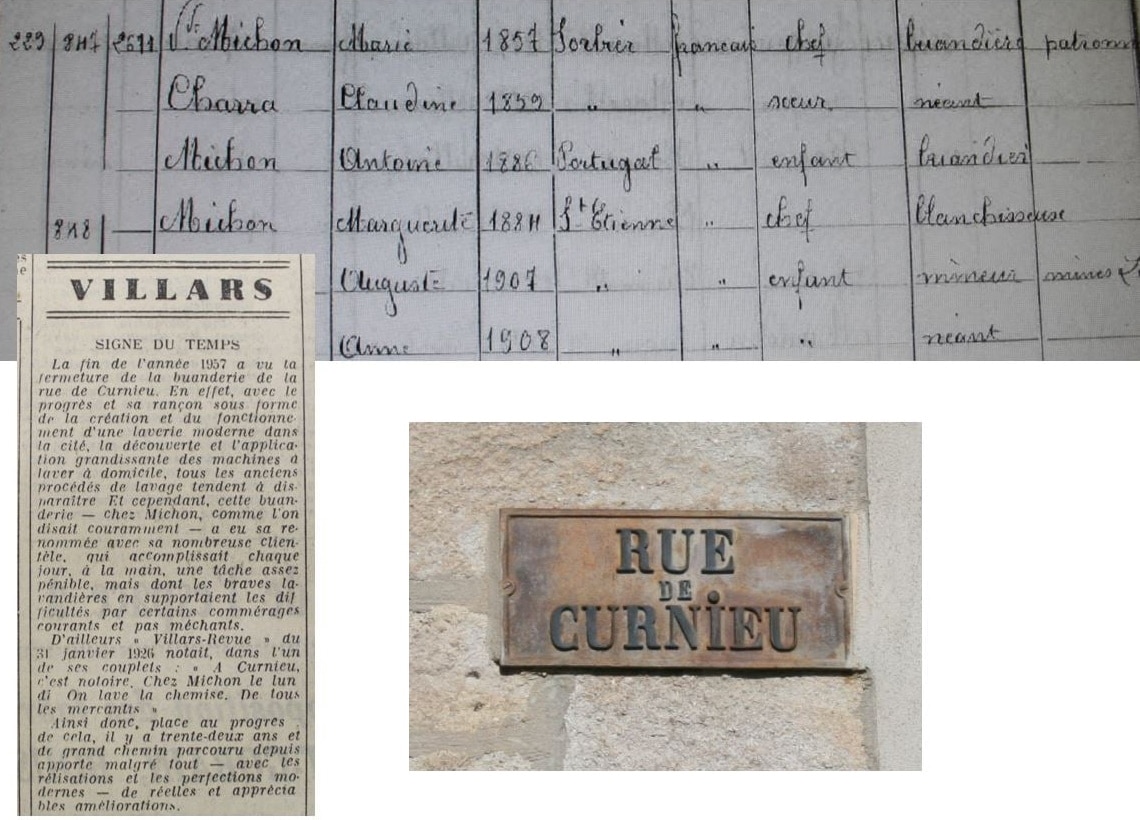 229 847 2671 Vve Michon Marie 1857 Sorbier français chef buandière patronne
Charra Claudine 1859 " " sœur néant
Michon Antoine 1886 Portugal " enfant buandier
848 Michon Marguerite 1884 St Etienne " chef blanchisseuse
Auguste 1907 " " enfant mineur mines
Anne 1908 " " " néant
VILLARS
SIGNE DU TEMPS
La fin de l'année 1957 a vu la
fermeture de la buanderie de la
rue de Curnieu. En effet, avec le
progrès et sa rançon sous forme
de la création et du fonctionne-
ment d'une laverie moderne dans
la cité, la découverte et l'applica-
tion grandissante des machines à
laver à domicile, tous les anciens
procédés de lavage tendent à dis-
paraître Et cependant, cette buan-
derie — chez Michon, comme l'on
disait couramment — a eu sa re-
nommée avec sa nombreuse clien-
tèle, qui accomplissait chaque
jour, à la main, une tâche assez
pénible, mais dont les braves la-
vandières en supportaient les dif
ficultés par certains commérages
courants et pas méchants.
D'ailleurs « Villars-Revue » du
31 janvier 1926 notait, dans l'un
de ses couplets : « A Curnieu,
c'est notoire. Chez Michon le lun
di On lave la chemise. De tous
les mercantis »
Ainsi donc, place au progres :
de cela, il y a trente-deux ans et
de grand chemin parcouru depuis
apporte malgré tout — avec les
rélisations et les perfections mo-
dernes — de réelles et apprécia
bles améliorations.
RUE
DE
CURNIEU